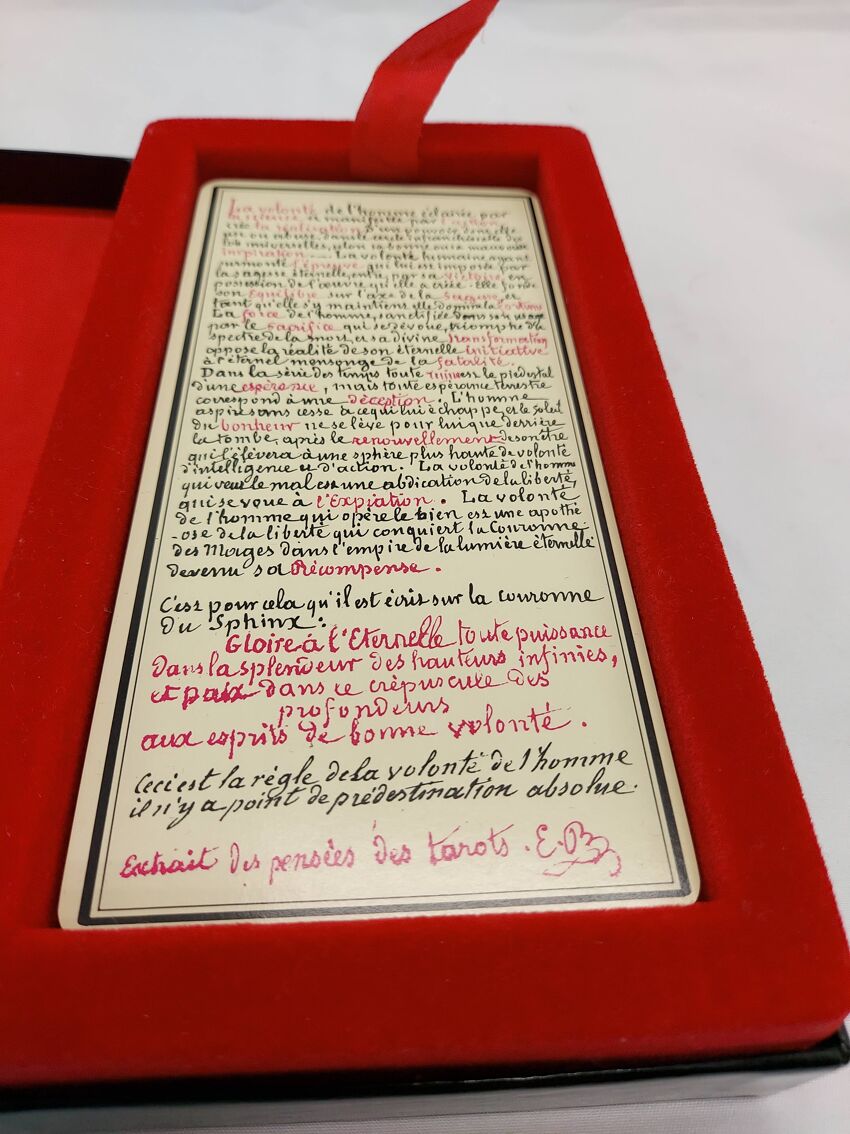 La volonté de l'homme éclairée par
la science et manifestée par l'action
crée la réalisation d'un pouvoir dont elle
use ou abuse, dans le cercle infranchissable des
lois universelles, selon sa bonne ou sa mauvaise
inspiration. — La volonté humaine ayant
surmonté l'épreuve qui lui est imposée par
la sagesse éternelle, entre, par sa victoire, en
possession de l'œuvre qu'elle a créée. Elle fonde
son Equilibre sur l'axe de la Sagesse, et
tant qu'elle s'y maintient elle domine la
La force de l'homme, sanctifiée dans son usage
par le sacrifice qui se dévoue, triomphe du
spectre de la mort, et sa divine transformation
oppose la réalité de son éternelle initiative
à l'éternel mensonge de la fatalité.
Dans la série des temps toute ruine est le piedestal
d'une espérance, mais toute espérance terrestre
correspond à une déception. L'homme
aspire sans cesse à ce qui lui échappe, et le soleil
du bonheur ne se lève pour lui que derrière
la tombe, après le renouvellement de son être
qui l'élèvera à une sphère plus haute de volonté
d'intelligence et d'action. La volonté de l'homme
qui veut le mal est une abdication de la liberté,
qui se voue à l'Expiation. La volonté
de l'homme qui opère le bien est une apothé
-ose de la liberté qui conquiert la Couronne
des Mages dans l'empire de la lumière éternelle
devenu sa Récompense.
C'est pour cela qu'il est écrit sur la couronne
du Sphinx:
Gloire à l'Eternelle toute puissance
dans la splendeur des hauteurs infinies,
et paix dans le crépuscule des
profondeurs
aux esprits de bonne volonté.
Ceci est la règle de la volonté de l'homme
il n'y a point de prédestination absolue.
Extrait des pensées des tarots. E.B